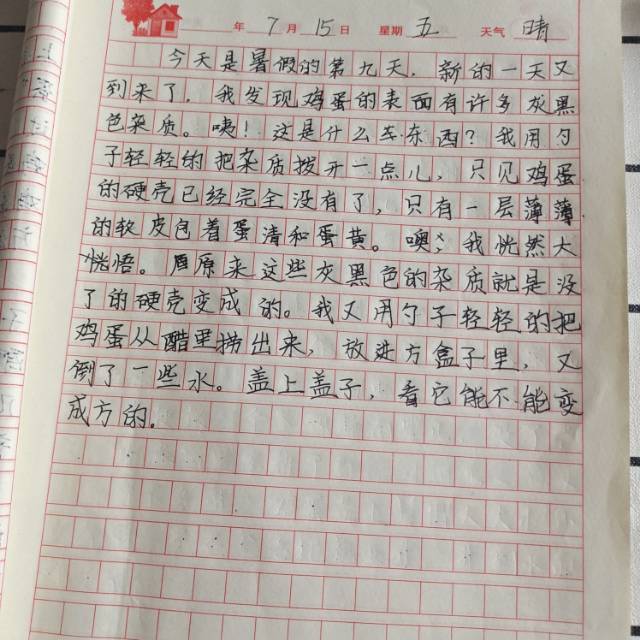 年 7 月 15 日 星期 五 天气 晴
今天是暑假的第九天，新的一天又
到来了，我发现鸡蛋的表面有许多灰黑
色杂质。咦！这是什么东西？我用勺
子轻轻的把杂质拨开一点儿，只见鸡蛋
的硬壳已经完全没有了，只有一层薄薄
的软皮包着蛋清和蛋黄。噢，我恍然大
悟。原来这些灰黑色的杂质就是没
了的硬壳变成的。我又用勺子轻轻的把
鸡蛋从醋里捞出来，放进方盒子里，又
倒了一些水。盖上盖子，看它能不能变
成方的。